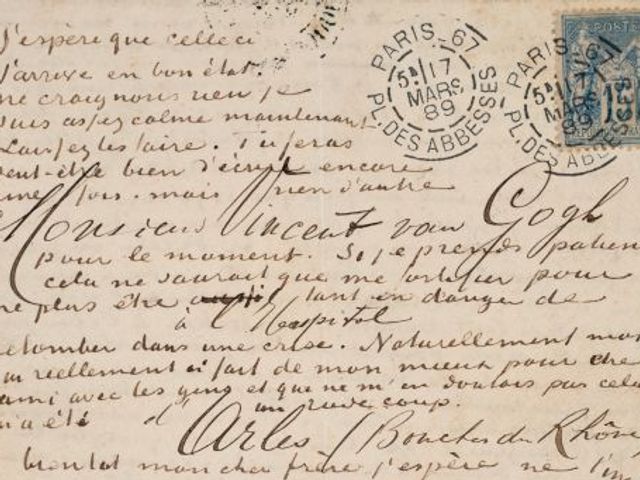 J'espère que celle ci
PARIS-67
5E/17
MARS
89
PL. DES ABBESSES
PARIS-67
MARS
89
PL. DES ABBESSES
POSTE
15
j'arrive en bon état.
ne craignons rien je
suis assez calme maintenant
Laissez les faire. Tu feras
peut-être bien d'écrire encore
une fois. mais rien d'autre
Monsieur Vincent van Gogh
pour le moment. Si je prends patien
cela ne saurait que me fortifier pour
ne plus être tant en danger de
à l'Hospital
retomber dans une crise. Naturellement moi
qui réellement ai fait de mon mieux pour être
ami avec les gens et que ne m'en doutais pas cela
m'a été un rude coup.
d'Arles (Bouches du Rhône
à bientôt mon cher frère j'espère ne t'in